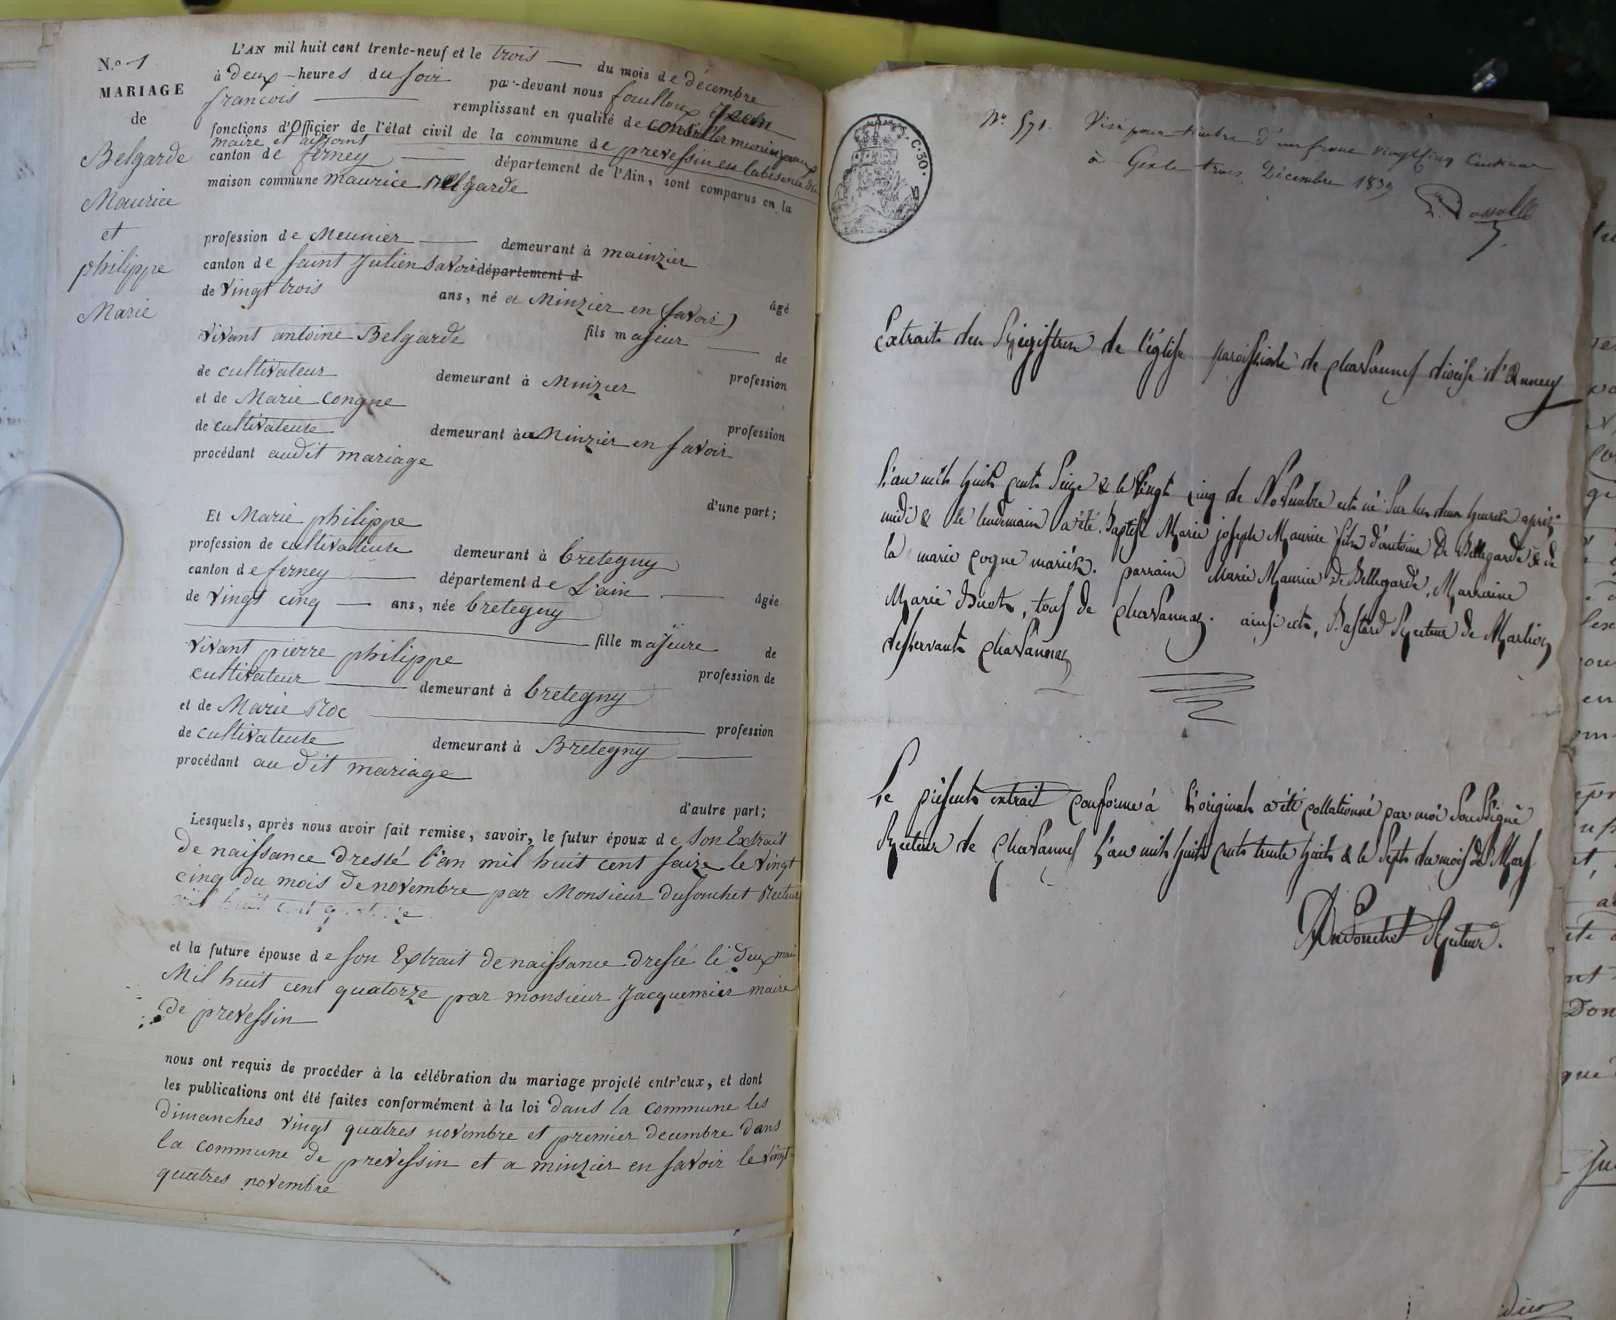 N.o 1
MARIAGE
de
Belgarde
Maurice
et
philippe
Marie
L'AN mil huit cent trente-neuf et le trois du mois de décembre
à deux heures du soir par-devant nous fouilloux Jean
francois remplissant en qualité de conseiller municipal
fonctions d'Officier de l'état civil de la commune de prevessin en labsence du
maire et adjoint
canton de ferney département de l'Ain, sont comparus en la
maison commune maurice Belgarde
profession de Meunier demeurant à mainzier
canton de saint Julien Savoir département d
de vingt trois ans, né a Minzier en (savoir) âgé
fils majeur de
vivant antoine Belgarde profession
de cultivateur demeurant à Minzier
et de Marie congne profession
de cultivateuse demeurant à a Minzier en savoir
procédant audit mariage
d'une part;
Et Marie philippe
profession de cultivateuse demeurant à bretegny
canton de ferney département de L'ain âgée
de vingt cinq ans, née bretegny
fille majeure de
vivant pierre philippe profession de
cultivateur demeurant à bretegny
et de Marie Roc profession
de cultivateuse demeurant à Bretegny
procédant au dit mariage
d'autre part;
Lesquels, après nous avoir fait remise, savoir, le futur époux de son Extrait
de naissance dressé l'an mil huit cent saize le vingt
cinq du mois de novembre par Monsieur dusonchet Recteur
et la future épouse de son Extrait de naissance dressé le deux mai
Mil huit cent quatorze par monsieur Jacquemier maire
de prevessin
nous ont requis de procéder à la célébration du mariage projeté entr'eux, et dont
les publications ont été faites conformément à la loi dans la commune les
dimanches vingt quatres novembre et premier decembre dans
la commune de prevessin et a minzier en savoir le vingt
quatres novembre
C. 30.
N.o 571. Visé pour timbre d'un franc vingt cinq centimes
à Gex le trois Décembre 1839
Extrait des Régistres de l'église paroissiale de chavannes diocèse d'Annecy
L'an mil huit cents Seize & le Vingt cinq de Novembre est né sur les deux heures après
midi & le lendemain a été Baptisé Marie joseph Maurice fils d'antoine De Bellegarde & de
la marie cogne mariés. parrain Marie Maurice De Bellegarde, Marraine
Marie Buet, tous de chavannaz. ainsi est, Bastard Recteur de Marlioz
desservant chavannaz
Le présent extrait conforme à l'original a été collationné par moi Soussigné
Recteur de chavannes L'an mil huit cents trente huit & le Sept du mois de Mars
Dusonchet Recteur.